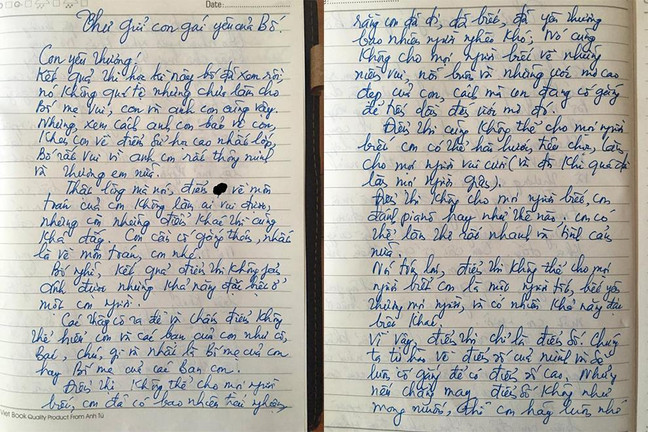 Date:
Thư gửi con gái yêu của Bố.
Con yêu thương!
Kết quả thi học kì này bố đã xem rồi,
nó không quá tệ nhưng chưa làm cho
Bố mẹ vui, con và anh con cũng vậy.
Nhưng, xem cách anh con bảo vệ con,
khen con về điểm sử học cao nhất lớp,
Bố rất vui vì anh con rất thông minh
và thương em nữa.
Thật lòng mà nói, điểm về môn
toán của con không làm ai vui được,
nhưng còn những điểm khác thì cũng
khá đấy. Con cần cố gắng thêm, nhất
là về môn toán, con nhé.
Bố nghĩ, kết quả điểm thi không phản
ánh được những khả năng đặc biệt ở
mỗi con người.
Các thầy cô ra đề và chấm điểm không
thể hiểu con và các bạn của con như cô,
bác, chú, gì và nhất là Bố mẹ của con
hay Bố mẹ của các bạn con.
Điểm thi không thể cho mọi người
biết, con đã có bao nhiêu trải nghiệm,
Viet Book Quality Product From Anh Tú
rằng con đã đi, đã biết, đã yêu thương
bao nhiêu người nghèo khó; Nó cũng
không cho mọi người biết về những
niềm vui, nỗi buồn và những ước mơ cao
đẹp của con, cách mà con đang cố gắng
để tiến dần đến ước mơ đó.
Điểm thi cũng không thể cho mọi người
biết con có thể hài hước, tiếu lâm, làm
cho mọi người vui cười (và đôi khi quá đà
làm mọi người giận).
Điểm thi không cho mọi người biết, con
đánh piano hay như thế nào. con có
thể làm thơ rất nhanh và tình cảm
nữa.
Nói tóm lại, điểm thi không thể cho mọi
người biết con là một người tốt, biết yêu
thương mọi người, và có nhiều khả năng đặc
biệt khác.
Vì vậy, điểm thi chỉ là điểm số. Chúng
ta tự hào về điểm số của mình và sẽ
luôn cố gắng để có điểm số cao. Nhưng
nếu chẳng may điểm số không như
mong muốn, thì con hãy luôn nhớ